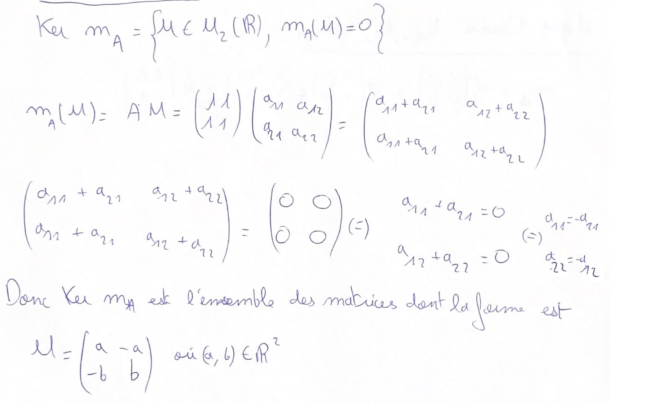 Ker m_A = {M ∈ M_2(ℝ), m_A(M) = 0}
m_A(M) = A M = (1 1 ; 1 1) (a_11 a_12 ; a_21 a_22) = (a_11 + a_21 a_12 + a_22 ; a_11 + a_21 a_12 + a_22)
(a_11 + a_21 a_12 + a_22 ; a_11 + a_21 a_12 + a_22) = (0 0 ; 0 0) (=) a_11 + a_21 = 0 ; a_12 + a_22 = 0 (=) a_11 = -a_21 ; a_22 = -a_12
Donc Ker m_A est l'ensemble des matrices dont la forme est
M = (a -a ; -b b) où (a, b) ∈ ℝ^2